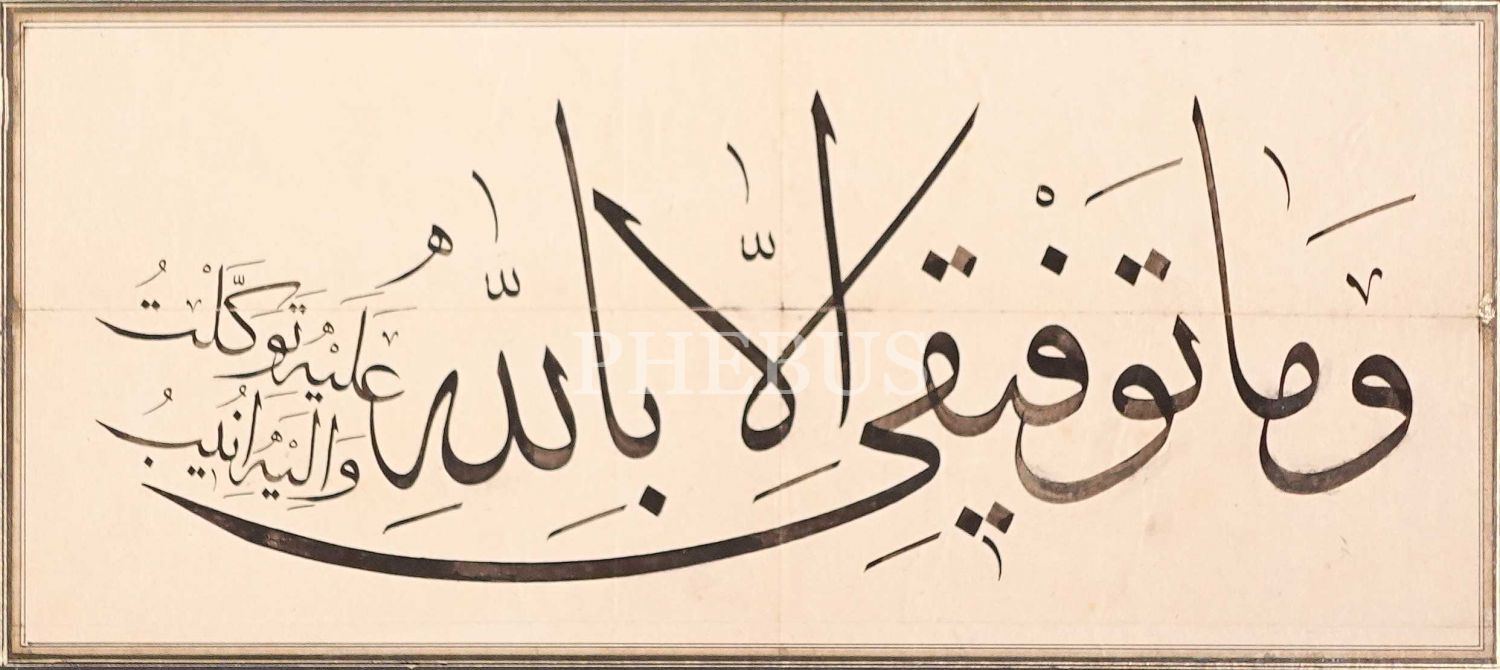 وَمَا تَوْفِيقِي إِلَّا بِاللَّهِ
عَلَيْهِ تَوَكَّلْتُ
وَإِلَيْهِ أُنِيبُ
PHEBUS